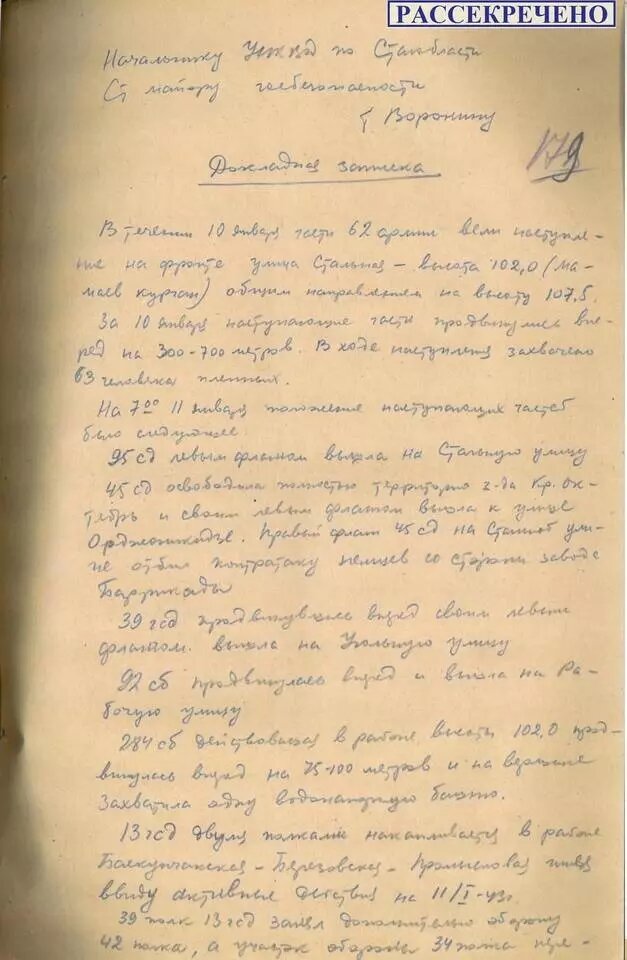 РАССЕКРЕЧЕНО
Начальнику УНКВД по Стан-бласти
Ст майору госбезопасности
т Воронину
179
Докладная записка
В течении 10 января части 62 армии вели наступле-
ние на фронте улица Стальная – высота 102,0 (Ма-
маев курган) общим направлением на высоту 107,5.
За 10 января наступающие части продвинулись впе-
ред на 300-700 метров. В ходе наступления захвачено
63 человека пленных.
На 7⁰⁰ 11 января положение наступающих частей
было следующее
95 сд левым флангом вышла на Стальную улицу
45 сд освободила полностью территорию з-да Кр. Ок-
тябрь и своим левым флангом вышла к улице
Орджоникидзе. Правый фланг 45 сд на Стальной ули-
це отбил контратаку немцев со стороны завода
Баррикады
39 гсд продвинувшись вперед своим левым
флангом вышла на Угольную улицу
92 сб продвинулась вперед и вышла на Ра-
бочую улицу
284 сд действовавшая в районе высоты 102,0 прод-
винулась вперед на 75-100 метров и на вершине
захватила одну водонапорную башню.
13 гсд двумя полками накапливается в районе
Баскунчакская – Березовская –
ввиду активные действия на 11/I-43г.
39 полк 13 гсд занял дополнительно оборону
42 полка, а участок обороны 34 полка пере-